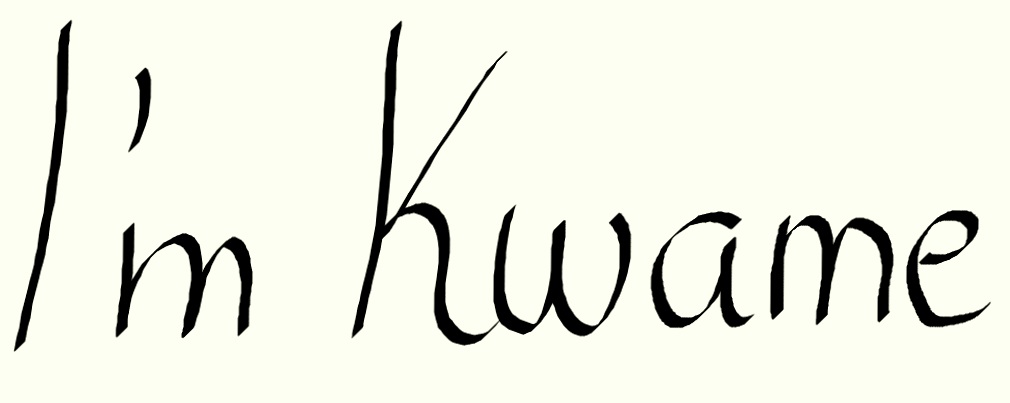 I'm Kwame